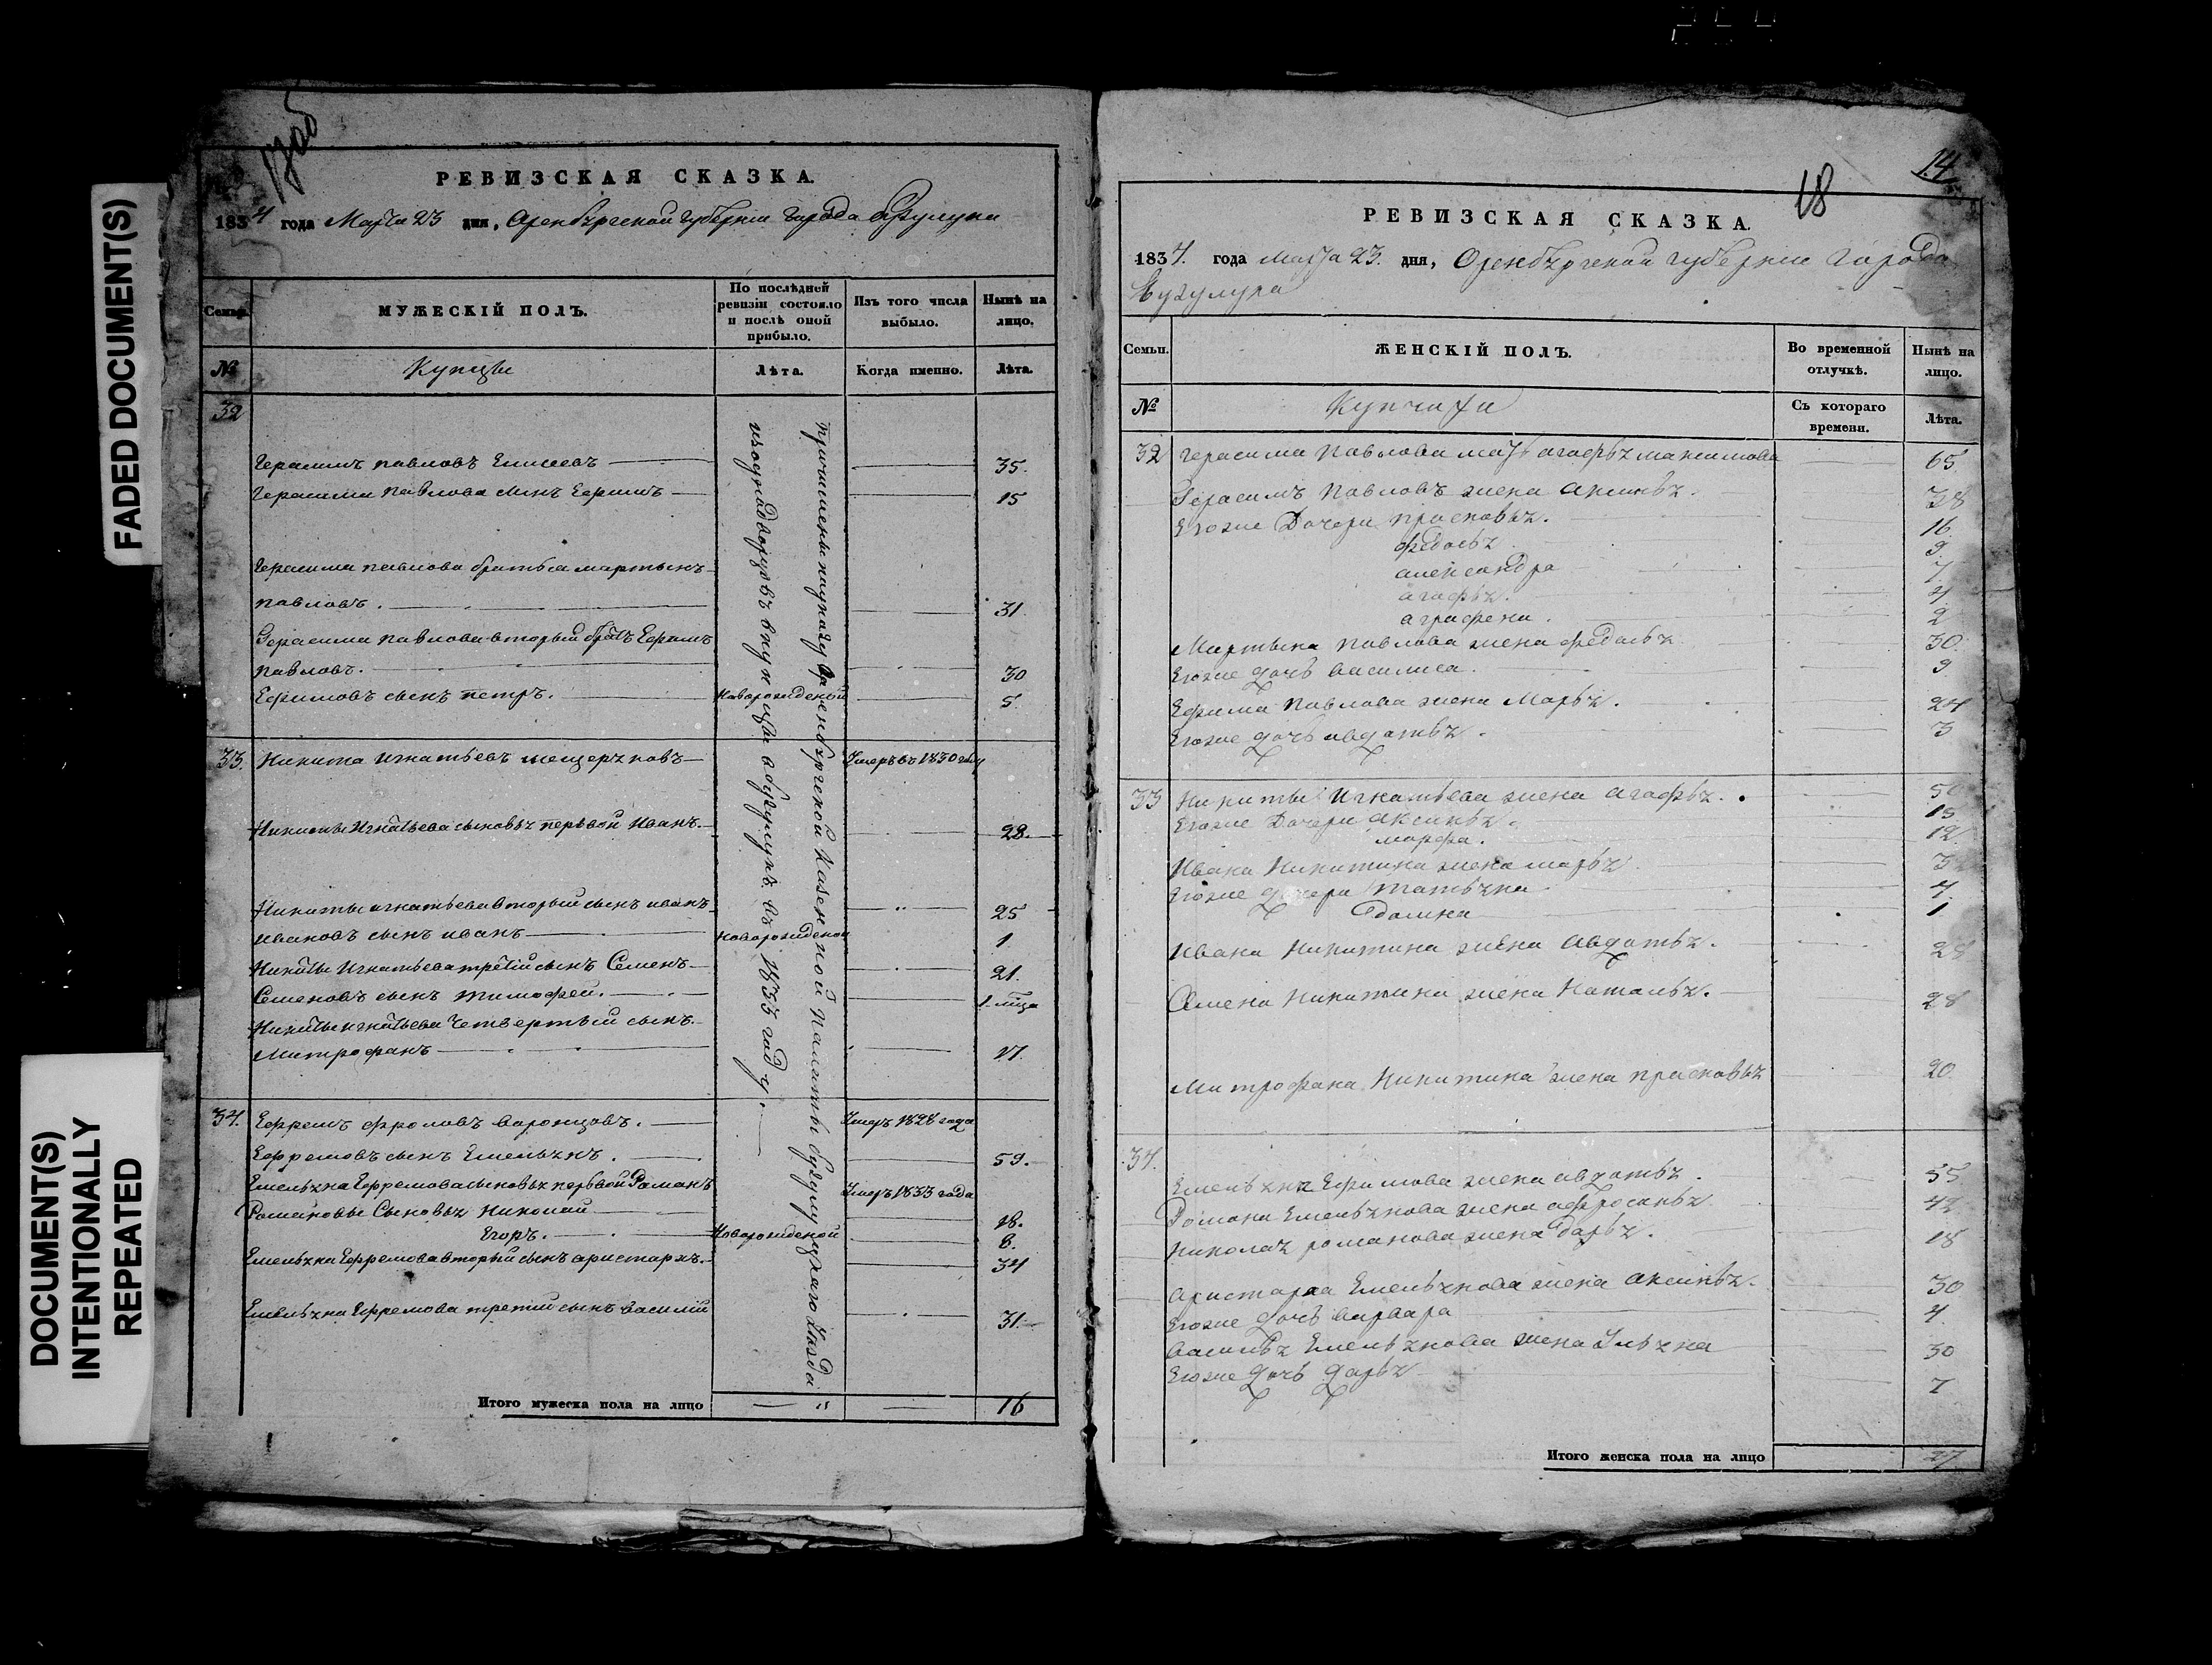 FADED DOCUMENT(S)
DOCUMENT(S)
INTENTIONALLY
REPEATED
РЕВИЗСКАЯ СКАЗКА.
1834 года Марта 23 дня, Оренбургской губернии города Бугулуки
Семьи. МУЖЕСКІЙ ПОЛЪ. По послѣдней ревизіи состояло и послѣ оной прибыло. Изъ того числа выбыло. Нынѣ на лицо.
№ Купцы Лѣта. Когда именно. Лѣта.
32
Герасимъ павловъ Елисеевъ 35.
Герасима павлова сынъ Ефимъ 15
Герасима павлова братья мартынъ
павловъ. 31.
Герасима павлова вторый братъ Ефимъ
павловъ. 30
Ефимовъ сынъ петръ. Новорожденой 5.
33. Никита игнатьевъ мещеряковъ Умеръ въ 1830 году
Никиты Игнатьева сыновья первой Иванъ. 28.
Никиты игнатьева вторый сынъ иванъ 25
ивановъ сынъ иванъ Новорожденой 1.
Никиты Игнатьева третiй сынъ Семенъ 21.
Семеновъ сынъ тимофей.
Никиты игнатьева четвертый сынъ.
Митрофанъ 17.
34. Ефремъ фроловъ варонцовъ. Умеръ 1828 года
Ефремовъ сынъ Емельянъ. 59.
Емельяна Ефремова сыновья первой Романъ Умеръ 1833 года
Романовы Сыновья Николай 18.
Егоръ. Новорожденой 8.
Емельяна Ефремова вторый сынъ аристархъ. 34
Емельяна Ефремова третий сынъ василий 31.
причислены
Оренбургской Казенной Палаты
уезда
въ 1833 году.
Итого мужеска пола на лицо 16
18
14
РЕВИЗСКАЯ СКАЗКА.
1834. года марта 23. дня, Оренбургской губернии города
Бугулука
Семьи. ЖЕНСКІЙ ПОЛЪ. Во временной отлучкѣ. Нынѣ на лицо.
№ Купчихи Съ котораго времени. Лѣта.
32 герасима Павлова мать агафья максимова 65
Герасимъ Павловъ жена аксинья. 38
Егоже Дочери прасковья. 16.
федосья 9.
александра 7.
агафья. 4
аграфена. 2
Мартына Павлова жена федосья 30.
Егоже дочь василиса. 9
Ефима Павлова жена Марья. 24
Егоже дочь авдотья. 3
33 Никиты Игнатьева жена агафья.
Егоже Дочери аксинья. 15
марфа. 12.
Ивана Никитина жена марья
Егоже дочери татьяна 4.
домна 1
Ивана Никитина жена авдотья. 28
Семена Никитина жена Наталья. 28
Митрофана Никитина жена прасковья 20
34. Емельяна Ефимова жена авдотья. 55
Романа Емельянова жена афросинья 42
Николая романова жена дарья. 18
аристарха Емельянова жена аксинья. 30
Егоже дочь варвара 4.
василья Емельянова жена Ульяна 30
Егоже дочь дарья 7
Итого женска пола на лицо 27